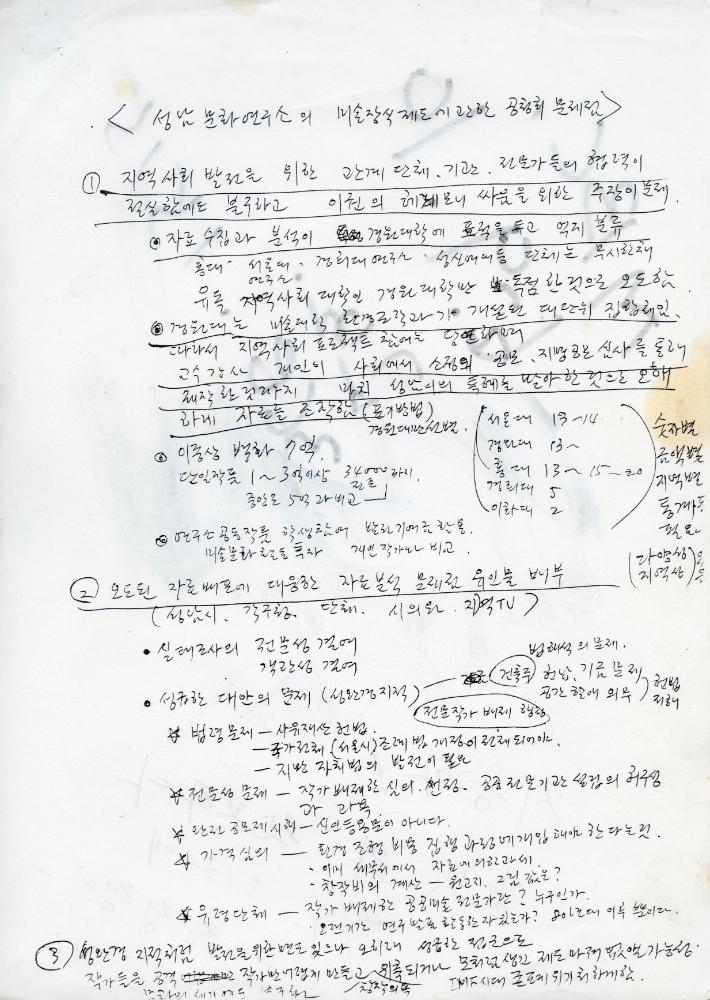 < 성남 문화연구소의 미술장식제도에 관한 공청회 문제점 >
① 지역사회 발전을 위한 관계 단체, 기관, 전문가들의 협력이
절실함에도 불구하고 이권의 헤게모니 싸움을 위한 주장이 문제.
자료 수집과 분석이 경원대학에 표적을 두고 억지 분류
홍대 서울대 · 경희대 연구소 · 성신여대등 단체는 무시한채
연구소
유독 지역사회 대학인 경원대학만 독점한 것으로 오도함.
경원대는 미술대학 환경조각과가 개설된 대단위 집합체임.
따라서 지역사회 프로젝트 참여는 당연하며
교수 강사 개인이 사회에서 소정의 공모, 지명공모 심사를 통해
제작한 것까지 마치 성남시의 특혜를 받아 한 것으로 오해
하게 자료를 조작함 (표기방법)
경원대만 선별.
이중상 백화 7억.
단일작품 1~3억이상 34000까지.
중앙로 5억과 비교
서울대 13~14
경원대 13~
홍대 13~15~20
경희대 5
이화대 2
숫자별
금액별
지역별
통계표
필요
(다양성
지역상)
연구소 공동작품 학생참여 발전기여금 활용.
미술문화 활동 투자 개인작가와 비교.
② 오도된 자료배포에 대응한 자료분석 문제점 유인물 배부
(성남시, 각구청, 단체, 시의회, 지역TV)
• 실태조사의 전문성 결여
객관성 결여
• 성급한 대안의 문제 (성완경지적)
법해석의 문제.
건축주 헌납, 기금 문제
공간 할애 의무
헌법
저해
전문작가 배제 행정
법령문제 - 사유재산 헌법.
- 국가전체 (서울시) 조례법 개정이 전제되어야.
- 지방 자치법의 발전이 필요
전문성 문제 - 작가 배제한 심의, 선정, 공공 전문기관 설립의 허구성
과 과욕
완전 공모제 시행 - 신인등용문이 아니다.
가격심의 - 환경 조형 비용 집행 과정에 개입해야 한다는것.
· 이미 세무서에서 자료에 의한 과세.
· 창작비의 계산 - 원고지, 그림 값은?
유령단체 - 작가 배제한 공공미술 전문가란? 누구인가.
· 오랜기간 연구 발표 활동한 자 있는가? 이루 뿐이다.
③ 성완경 지적처럼 발전을 위한 면도 있으나 오히려 성급한 접근으로
작가들을 공격 작가만 어렵게 만들고 위축되거나 모처럼 생긴 제도 마저 없앨 가능성.
창작의욕
IMF시대 공포에 위기 처하게함.